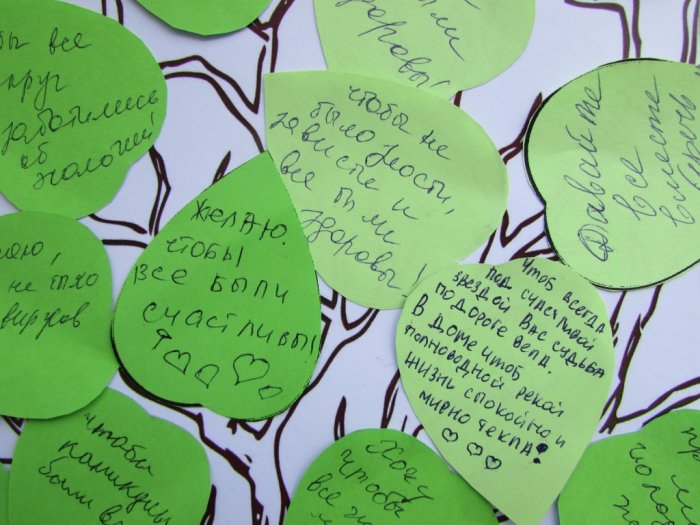 бы все
круг
заботились
об
экологии!
были
здоровы!
чтобы не
было злости,
зависти и
все были
здоровы!
Давайте
все
вместе
желаю.
чтобы
все были
счастливы!
чтоб всегда
под счастливой
звездой вас судьба
по дороге вела.
в доме чтоб
полноводной рекой
жизнь спокойно и
мирно текла!
не было
вирусов
чтобы
каникулы
были
Хочу
чтобы
все